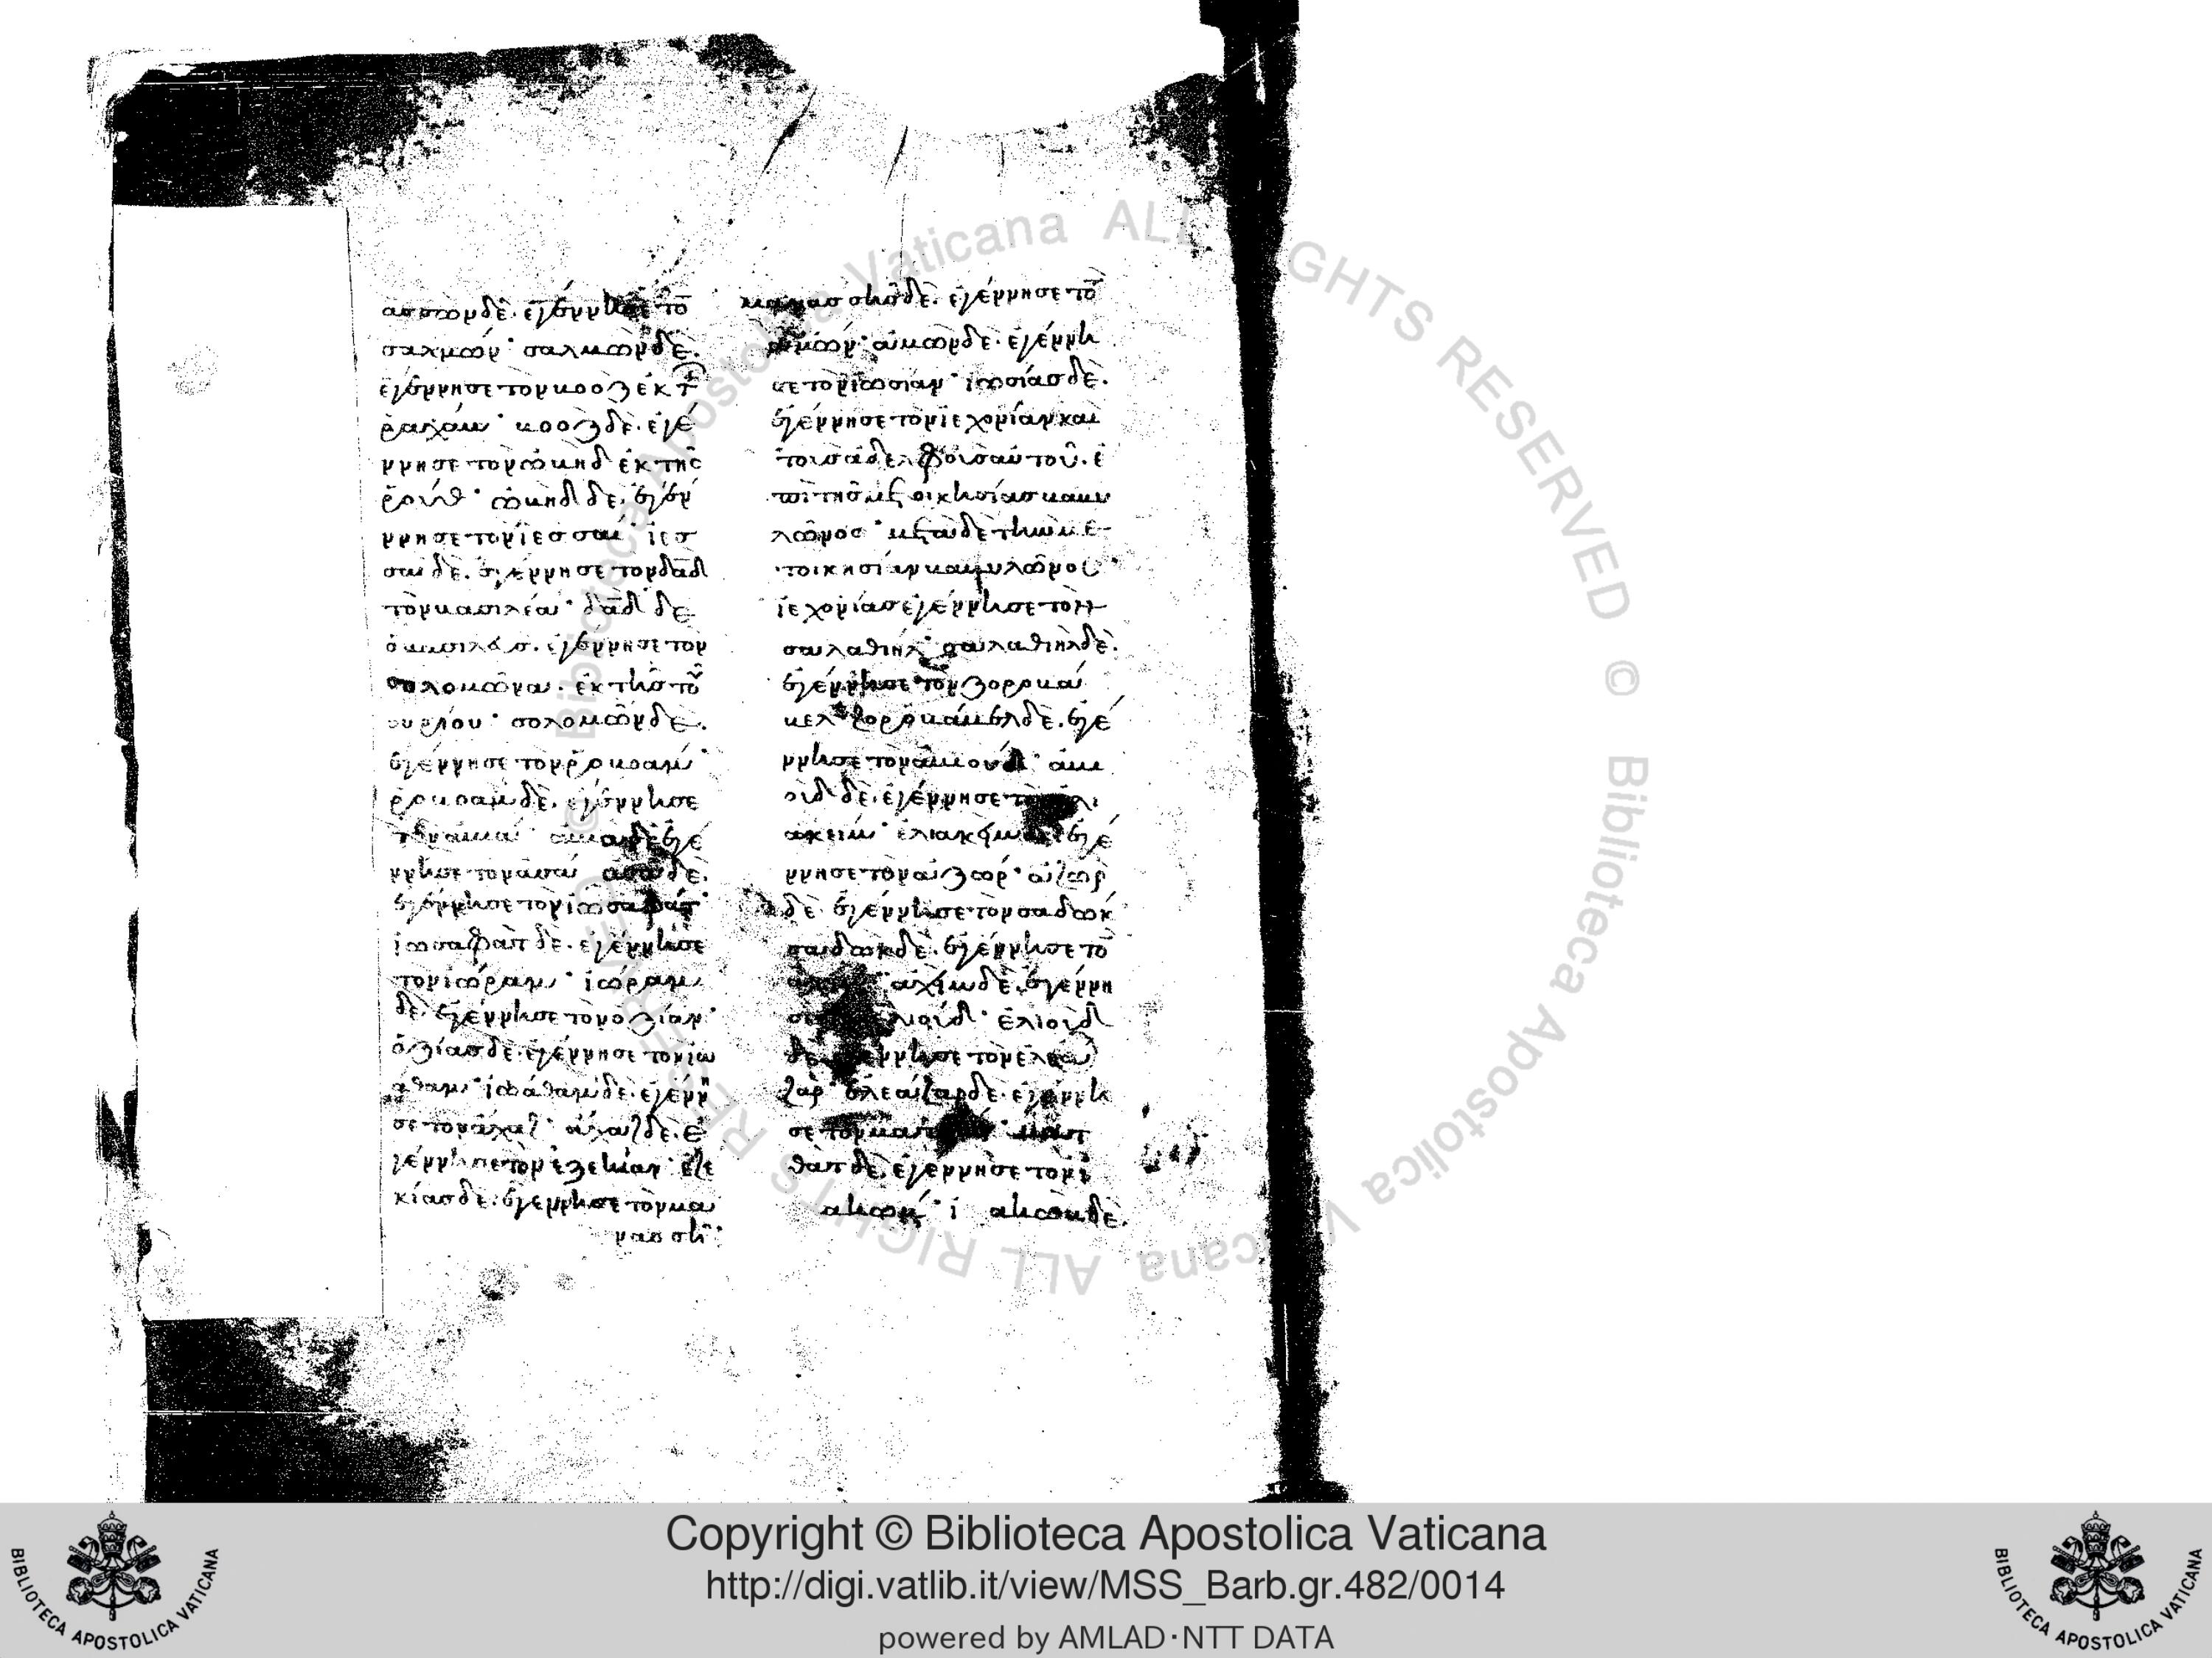 ασσὼν δὲ. ἐγέννησε τὸ̄
σαλμών· σαλμὼν δὲ.
ἐγέννησε τὸν βοὸζ ἐκ τ
ῥαχάβ· βοὸζ δὲ. ἐγέ
ννησε τὸν ὠβὴδ ἐκ τῆς
ῥούθ· ὠβὴδ δὲ. ἐγέν
ννησε τὸν ἰεσσαί· ἰεσ
σαὶ δὲ. ἐγέννησε τὸν δα̅δ
τὸν βασιλέα· δα̅δ δὲ
ὁ βασιλεύσ. ἐγέννησε τὸν
σολομῶνα. ἐκ τῆς τοῦ
ουρίου· σολομὼν δὲ.
ἐγέννησε τὸν ῥοβοάμ·
ῥοβοὰμ δὲ. ἐγέννησε
τὸν ἀβιά· ἀβιὰ δὲ ἐγέ
ννησε τὸν ἀσά· ἀσὰ δὲ.
ἐγέννησε τὸν ἰωσαφάτ·
ἰωσαφὰτ δὲ. ἐγέννησε
τὸν ἰωράμ· ἰωρὰμ
δὲ. ἐγέννησε τὸν ὀζίαν·
ὀζίασ δὲ. ἐγέννησε τὸν ιω
άθαμ· ἰωάθαμ δὲ. ἐγένν
σε τὸν ἄχαζ· ἄχαζ δὲ. ἐ
γέννησε τὸν ἐζεκίαν· ἐζε
κίασ δὲ. ἐγέννησε τὸν μα
νασσῆ·
μανασσῆσ δὲ. ἐγέννησε τὸ̄
ἀμών· ἀμὼν δὲ. ἐγέννη
σε τὸν ἰωσίαν· ἰωσίασ δὲ.
ἐγέννησε τὸν ἰεχονίαν καὶ
τοὺσ ἀδελφοὺσ αὐτοῦ. ἐ
πὶ τῆσ μετοικησίασ βαβυ
λῶνος· μετὰ δὲ τὴν με
τοικησίαν βαβυλῶνοσ·
ἰεχονίασ ἐγέννησε τὸν
σαλαθιήλ· σαλαθιὴλ δὲ.
ἐγέννησε τὸν ζοροβά
βελ· ζοροβάβελ δὲ. ἐγέ
ννησε τὸν ἀβιούδ· ἀβι
οὺδ δὲ. ἐγέννησε τὸν ἐλι
ακείμ· ἐλιακεὶμ δὲ ἐγέ
ννησε τὸν ἀζώρ· ἀζὼρ
δὲ. ἐγέννησε τὸν σαδώκ
σαδὼκ δὲ. ἐγέννησε τὸ̄
ἀχ· ἀχὶμ δὲ. ἐγέννη
σε λιούδ· ἐλιοὺδ
δὲ. ἐγέννησε τὸν ἐλεά
ζαρ· ἐλεάζαρ δὲ. ἐγέννη
σε τὸν ματ· ματ
θὰτ δὲ. ἐγέννησε τὸν ἰ
ακώβ· ἰακὼβ δὲ.
Copyright © Biblioteca Apostolica Vaticana
http://digi.vatlib.it/view/MSS_Barb.gr.482/0014
powered by AMLAD·NTT DATA
BIBLIOTECA APOSTOLICA VATICANA
BIBLIOTECA APOSTOLICA VATICANA
© Biblioteca Apostolica Vaticana ALL RIGHTS RESERVED © Biblioteca Apostolica Vaticana ALL RIGHTS RESERVED